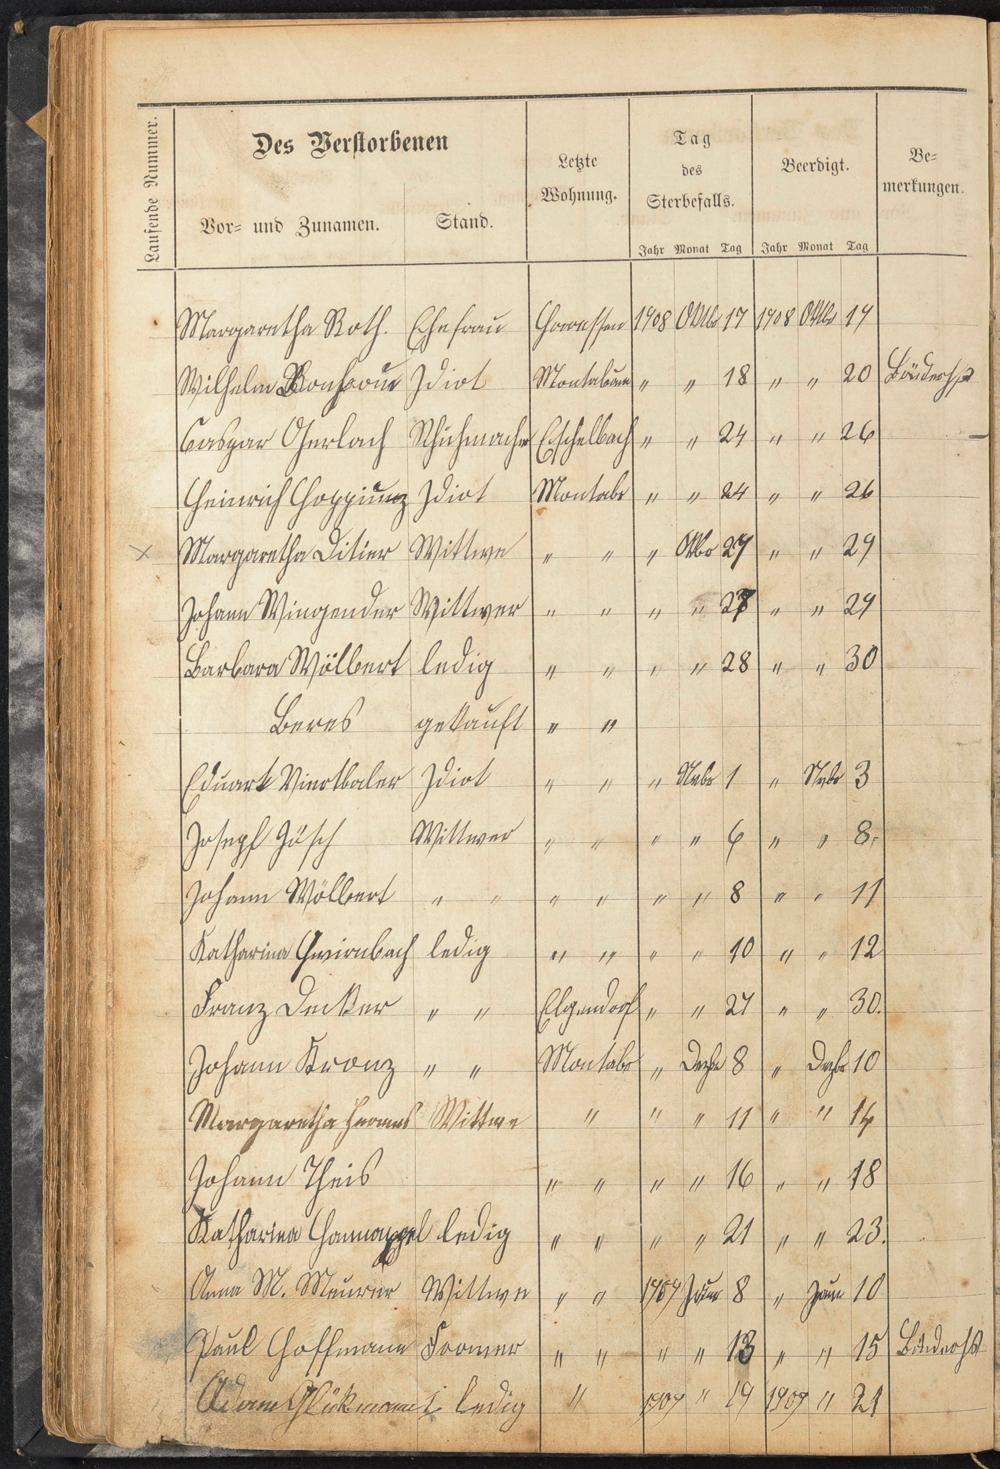 Laufende Nummer.
Des Verstorbenen
Vor= und Zunamen. Stand.
Letzte Wohnung.
Tag des Sterbefalls.
Jahr Monat Tag
Beerdigt.
Jahr Monat Tag
Be= merkungen.
Margaretha Roth. Ehefrau 1908 Oktbr 17 1908 Oktbr 19
Wilhelm Idiot Montabaur " " 18 " " 20
Caspar Gerlach Schuhmacher Eschelbach " " 24 " " 26
Heinrich Idiot Montabr " " 24 " " 26
Margaretha Ditier Wittwe " " " Oktbr 27 " " 29
Johann Wingender Wittwer " " " " 27 " " 29
Barbara Wölbert ledig " " " " 28 " " 30
Beres getauft " "
Eduart Idiot " " " Nvbr 1 " Nvbr 3
Josepf Gösch Wittwer " " " " 6 " " 8.
Johann Wölbert " " " " " " 8 " " 11
Katharina ledig " " " " 10 " " 12
Franz Decker " " Elgendorf " " 27 " " 30.
Johann Kronz " " Montabr " Dezbr 8 " Dezbr 10
Margaretha Hermes Wittwe " " " 11 " " 14
Johann Theis " " " " 16 " " 18
Katharina Hannappel ledig " " " " 21 " " 23.
Anna M. Meurer Wittwe " " 1909 Janr 8 " Janr 10
Paul Hoffmann Former " " " " 13 " " 15
Adam Glükmann ledig " 1909 " 19 1909 " 21